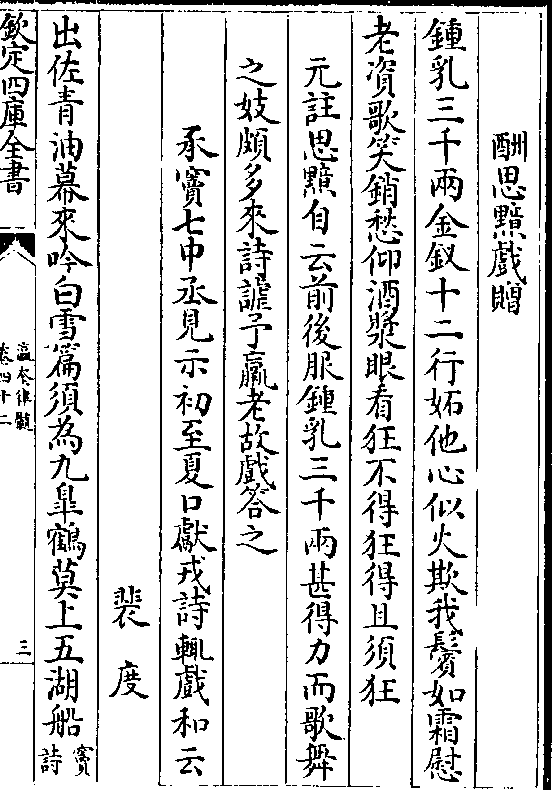 酬思黯戲贈
鍾乳三千兩金釵十二行妬他心似火欺我鬢如霜慰
老資歌笑銷愁仰酒漿眼看狂不得狂得且須狂
元註思黯自云前後服鍾乳三千兩甚得力而歌舞
之妓頗多來詩謔予羸老故戲答之
承竇七中丞見示初至夏口獻戎詩輒戲和云
裴度
出佐青油幕來吟白雪篇須為九臯鶴莫上五湖船竇
詩
欽定四庫全書
瀛奎律髓
卷四十二
三